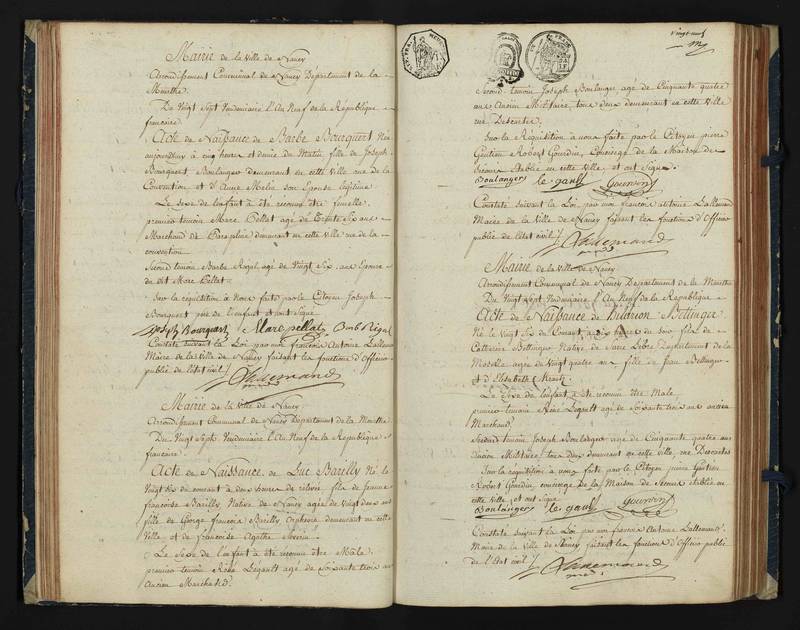 Mairie de la Ville de Nancy
Arrondissement Communal de Nancy Département de la
Meurthe.
Du Vingt Sept Vendemiaire l'An Neuf de la République
francaise
Acte de Naissance de Barbe Bourquert Née
aujourdhuy à cinq heures et demie du Matin fille de Joseph
Bourquert Boulanger demeurant en cette Ville rue de la
Convention et d'Anne son Epouse légitime
Le Sexe de l'enfant à été reconnu être femelle.
premier temoin Marc Pellat agé de Trente Six ans
Marchand de Parapluie demeurant en cette Ville rue de la
convention
Second temoin Barbe agé de Vingt Six ans Epouse
de dit Marc Pellat
Sur la réquisition à Nous faite par le Citoyen Joseph
Bourquert pere de l'enfant et ont Signé
Joseph Bourquert Marc pellat Barb
Constaté suivant la Loi par moi françois Antoine Lallemand
Maire de la Ville de Nancy faisant les fonctions d'Officier
public de l'état civil
Lallemand
Mairie de la Ville de Nancy
Arrondissement Communal de Nancy Département de la Meurthe
Du Vingt Sept Vendemiaire l'An Neuf de la République
francaise
Acte de Naissance de Luc Bareilly Né le
Vingt Six du courant à deux heures de fils de Jeanne
françoise Bareilly Native de Nancy agée de Vingt deux ans
fille de George françois Bareilly demeurant en cette
Ville et de francoise Agathe
Le Sexe de l'enfant à été reconnu être Mâle.
premier temoin Réné Légault agé de Soixante trois ans
Ancien Marchand.
Vingt neuf
Second temoin Joseph Boulanger agé de Cinquante quatre
ans Ancien Militaire, tous deux demeurant en cette Ville
rue Descartes.
Sur la Requisition à nous faite par le Citoyen pierre
Gentien Robert Gourdin, Concierge de la Maison de
Secours établie en cette Ville, et ont Signé
Boulanger le gault Gourdin
Constaté suivant la Loi, par moi francois Antoine Lallemand
Maire de la Ville de Nancy faisant les fonctions d'Officier
public de l'état civil
Lallemand
Mairie de la Ville de Nancy
Arrondissement Communal de Nancy Département de la Meurthe
Du Vingt Sept Vendemiaire l'An Neuf de la République
Acte de Naissance de Hilarion Bettinger
Né le Vingt Six du Courant à Six heures du Soir fils de
Catherine Bettinger Native de Département de la
Moselle agée de Vingt quatre ans fille de Jean Bettinger
et d'Elisabeth
Le Sexe de l'enfant à été reconnu être Male
premier temoin Réné Légault agé de Soixante trois ans ancien
Marchand.
Second temoin Joseph Boulanger agé de Cinquante quatre ans
Ancien Militaire, tous deux demeurant en cette Ville, rue Descartes
Sur la réquisition à nous faite par le Citoyen pierre Gentien
Robert Gourdin, concierge de la Maison de Secours établie en
cette Ville, et ont Signé
Boulanger le gault Gourdin
Constaté suivant la Loi par moi francois Antoine Lallemand
Maire de la Ville de Nancy faisant les fonctions d'Officier public
de l'état civil
Lallemand